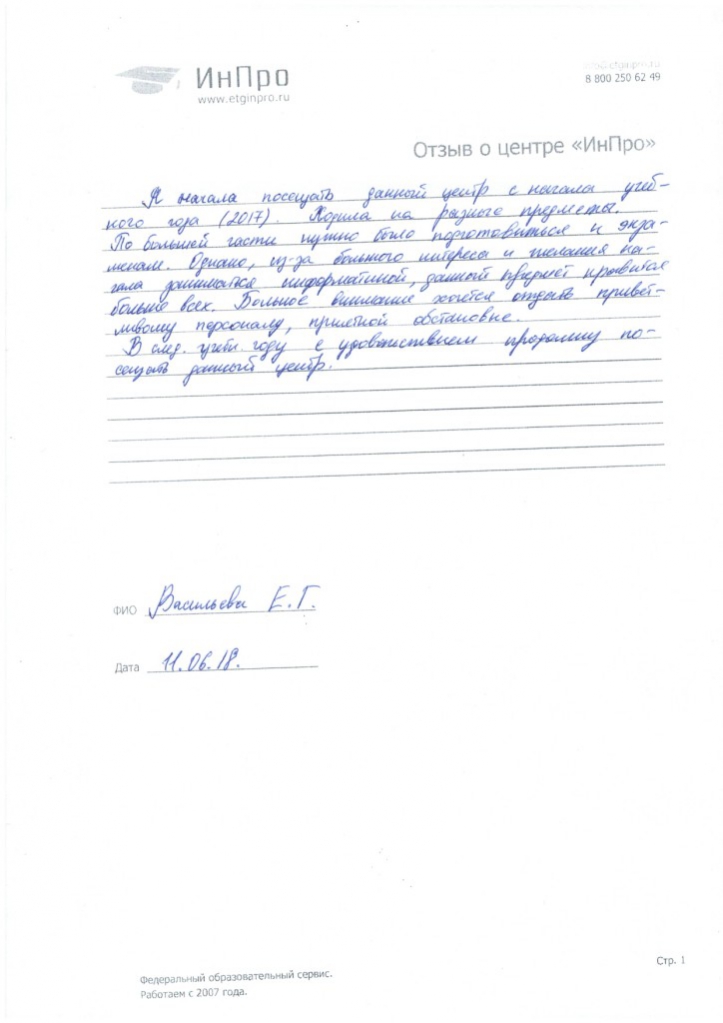 ИнПро
www.etginpro.ru
info@etginpro.ru
8 800 250 62 49
Отзыв о центре «ИнПро»
Я начала посещать данный центр с начала учеб-
ного года (2017). Ходила на разного предметы.
По большей части нужно было подготовиться к экза-
менам. Однако, из-за большого интереса и желания на-
чала заниматься информатикой, данный предмет нравится
больше всех. Большое внимание хочется отдать привет-
ливому персоналу, приятной обстановке.
В след. учебн. году с удовольствием продолжу по-
сещать данный центр.
ФИО Васильева Е.Г.
Дата 11.06.18.
Стр. 1
Федеральный образовательный сервис.
Работаем с 2007 года.